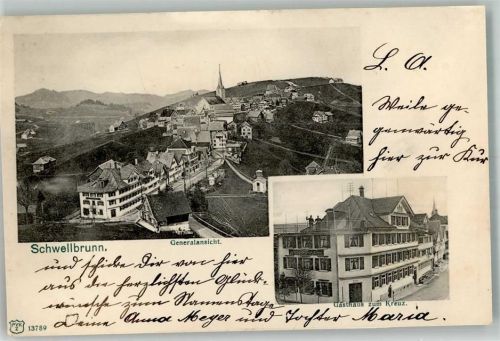 L. A.
Weile ge-
genwärtig
hier zur Kur
Schwellbrunn.
Generalansicht.
und schicke Dir von hier
aus die herzlichsten Glück-
wünsche zum Namenstage
Gasthaus zum Kreuz.
Deine Anna Meyer und Tochter Maria.
13789